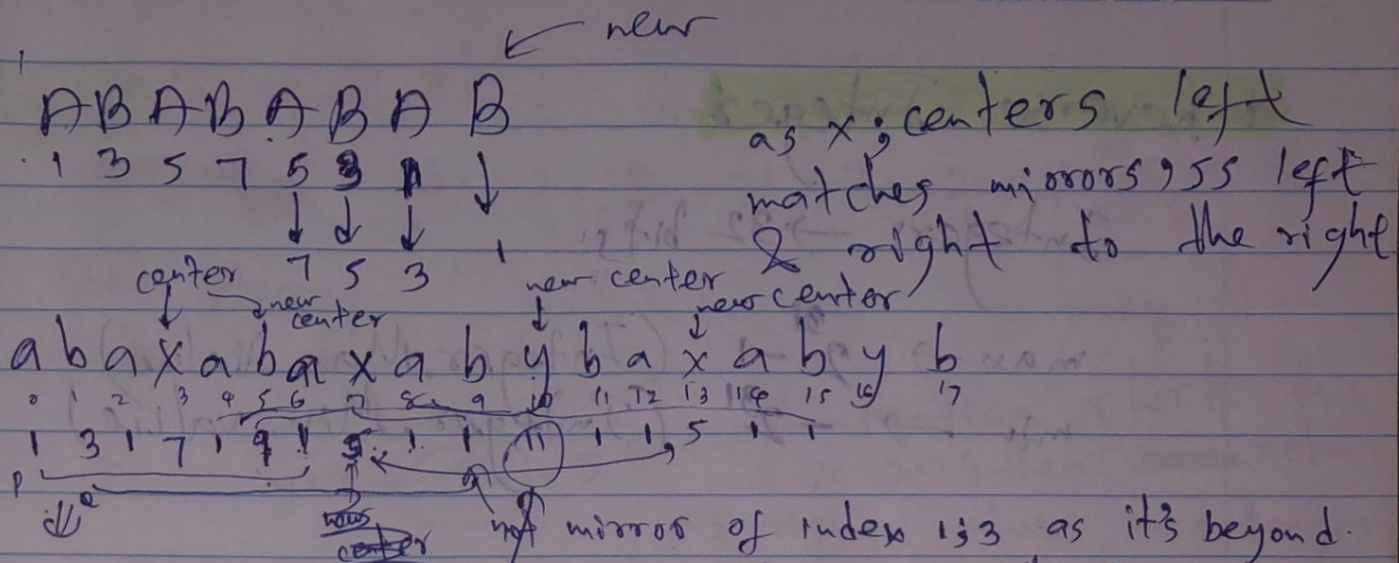 new
A B A B A B A B
1 3 5 7 5 3 1
7 5 3 1
as x; centers left
matches mirrors, 55 left
& right to the right
center new center new center
new center
a b a x a b a x a b y b a x a b y b
0 1 2 3 4 5 6 7 8 9 10 11 12 13 14 15 16 17
1 3 1 7 1 9 1 5 1 1 11 1 1 5 1 1
P
not mirror of index 1;3 as it's beyond.
center